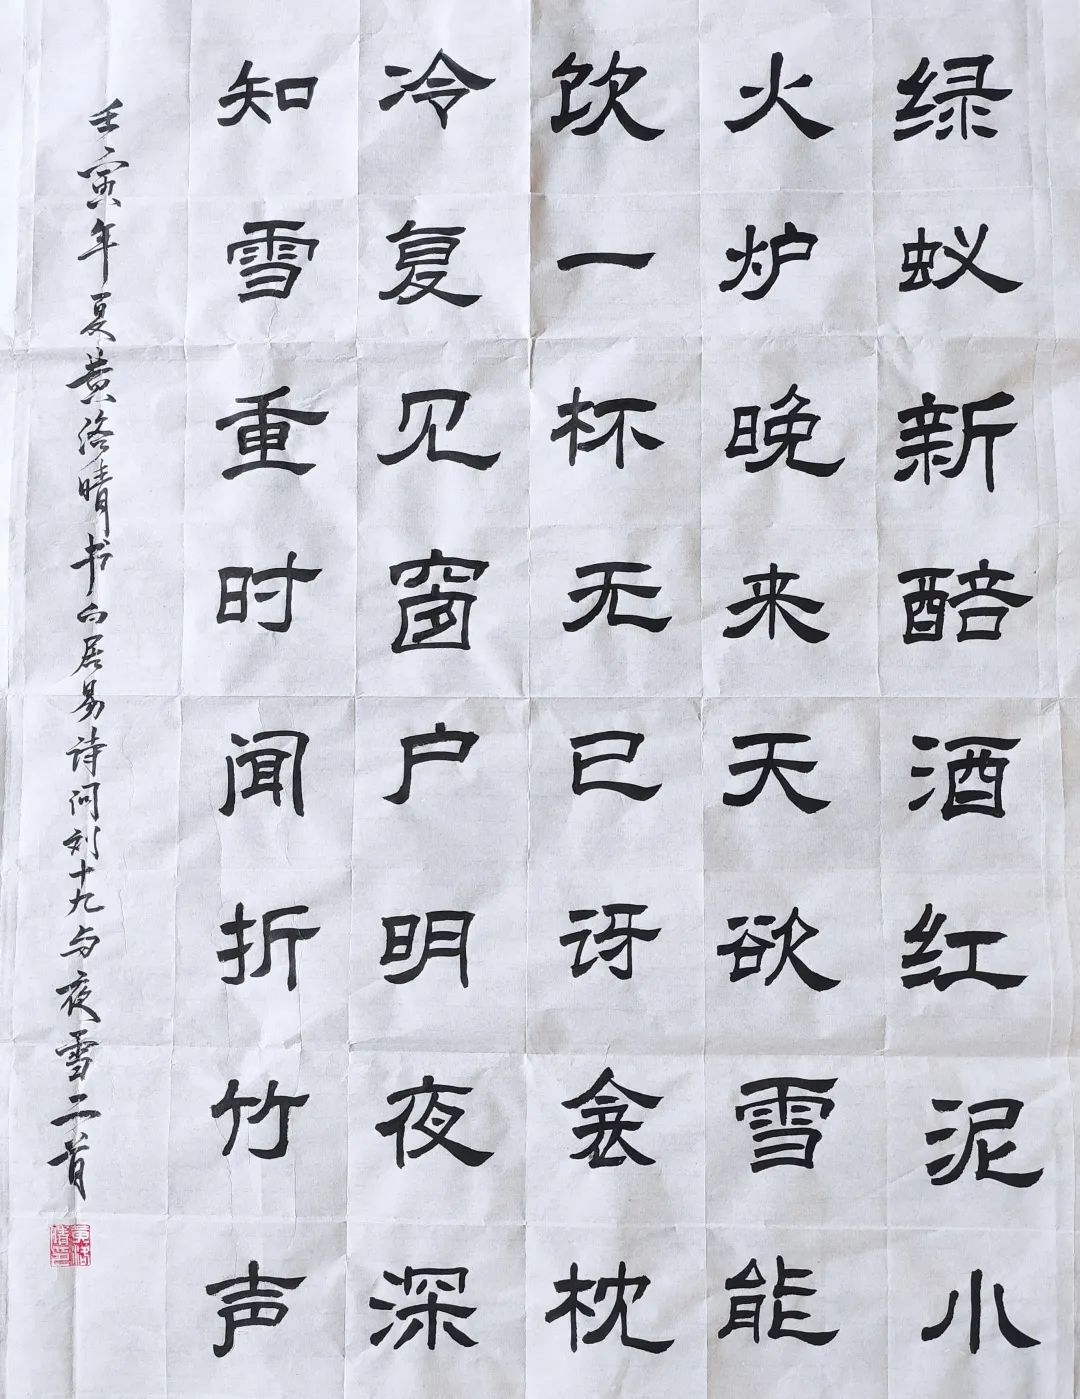 绿蚁新醅酒红泥小
火炉晚来天欲雪能
饮一杯无已讶衾枕
冷复见窗户明夜深
知雪重时闻折竹声
壬寅年夏黄洛晴书白居易诗问刘十九与夜雪二首
黄洛晴印